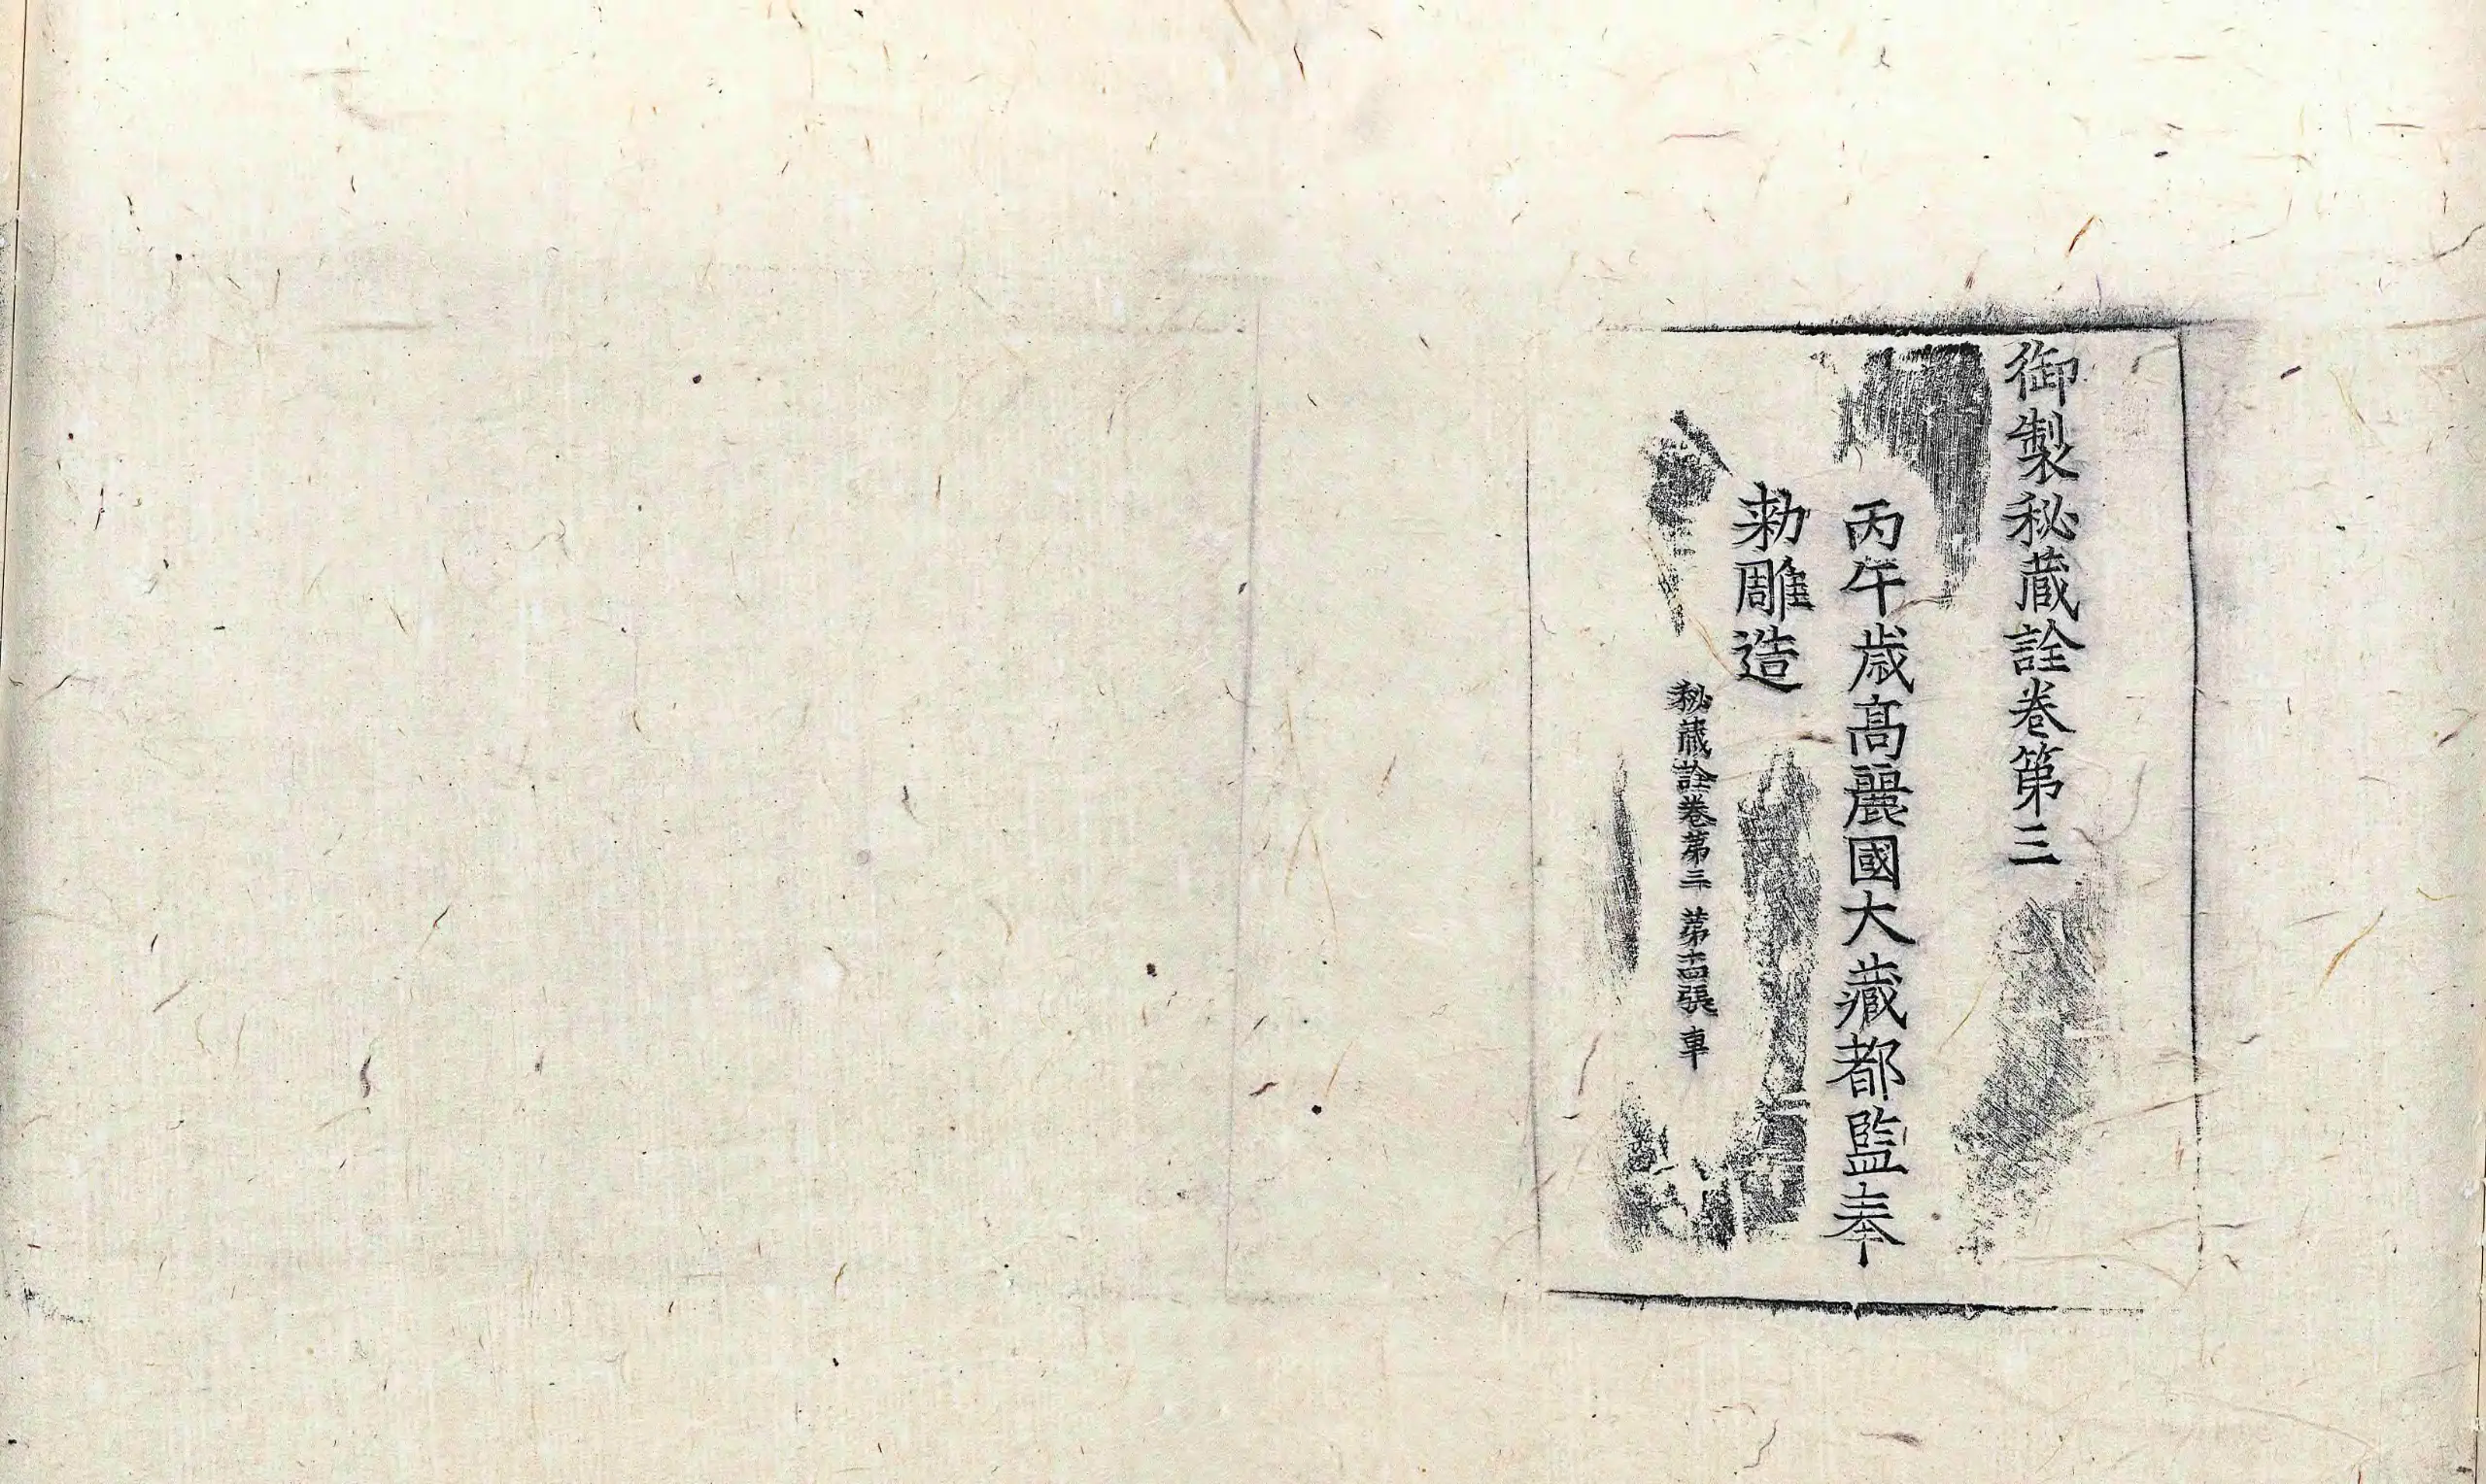 御製秘蔵詮卷第三
丙午歳高麗國大藏都監奉
勅雕造
秘蔵詮卷第三 苐十四張 車